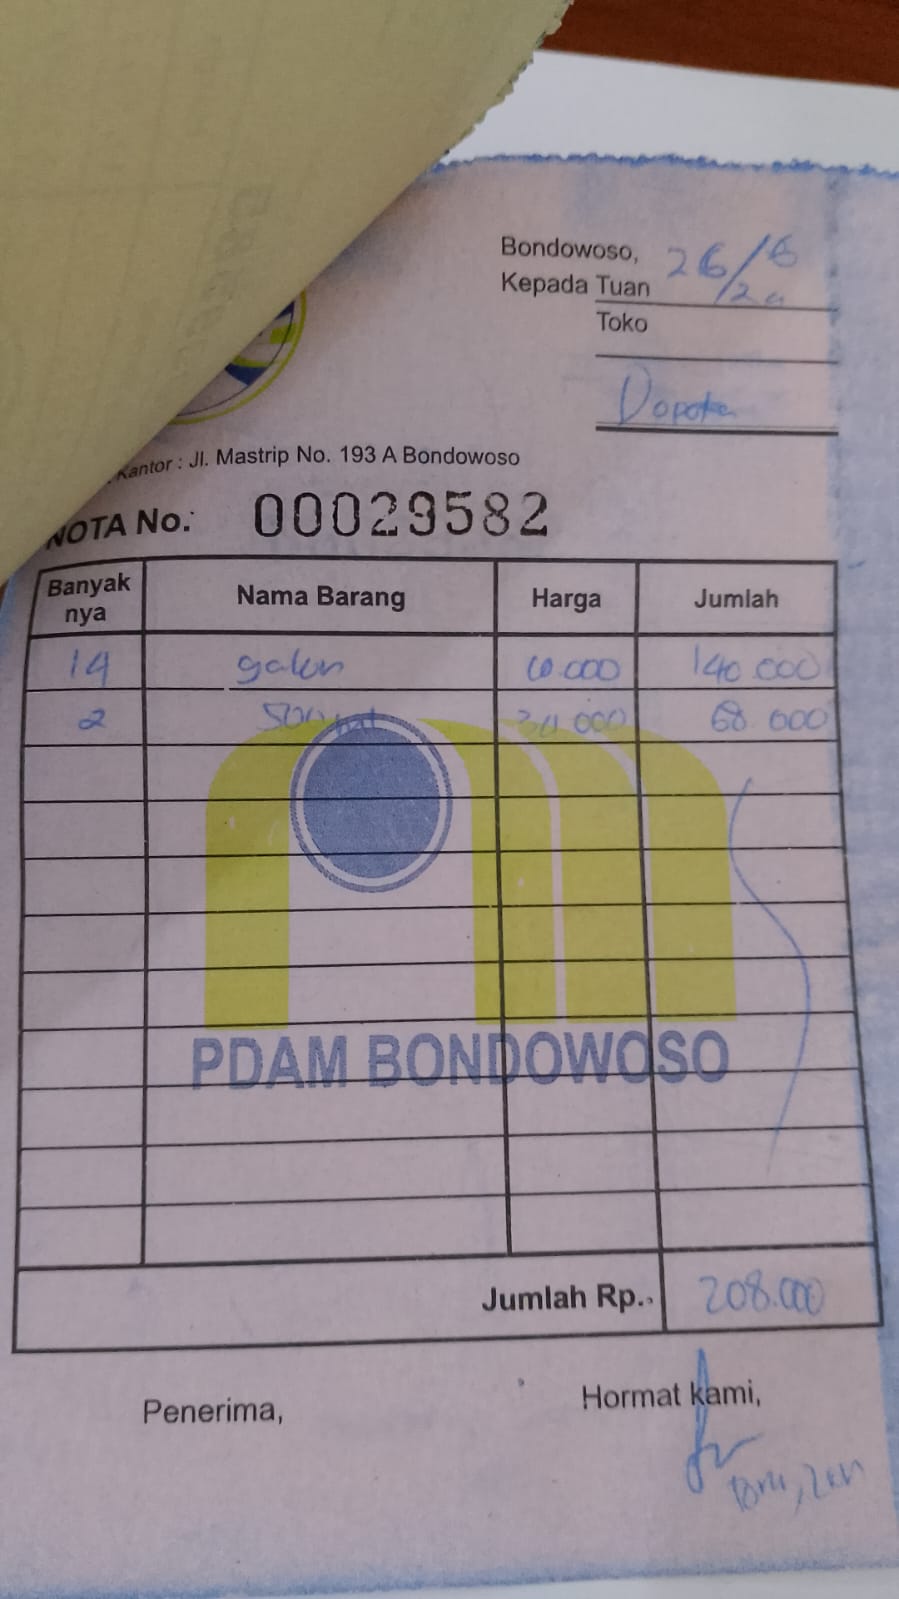 Bondowoso, 26/6
Kepada Tuan
Toko
Kantor : Jl. Mastrip No. 193 A Bondowoso
NOTA No. 00029582
Banyak nya Nama Barang Harga Jumlah
14 galon 10.000 140.000
2 500 ml 34.000 68.000
PDAM BONDOWOSO
Jumlah Rp. 208.000
Penerima, Hormat kami,